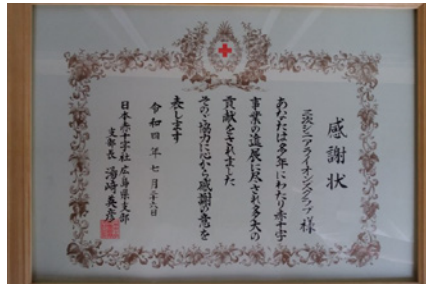 感謝状
三次シニアライオンズクラブ 様
あなたは多年にわたり赤十字
事業の進展に尽され多大の
貢献をされました
そのご協力に心から感謝の意を
表します
令和四年七月二六日
日本赤十字社広島県支部
支部長 湯﨑英彦